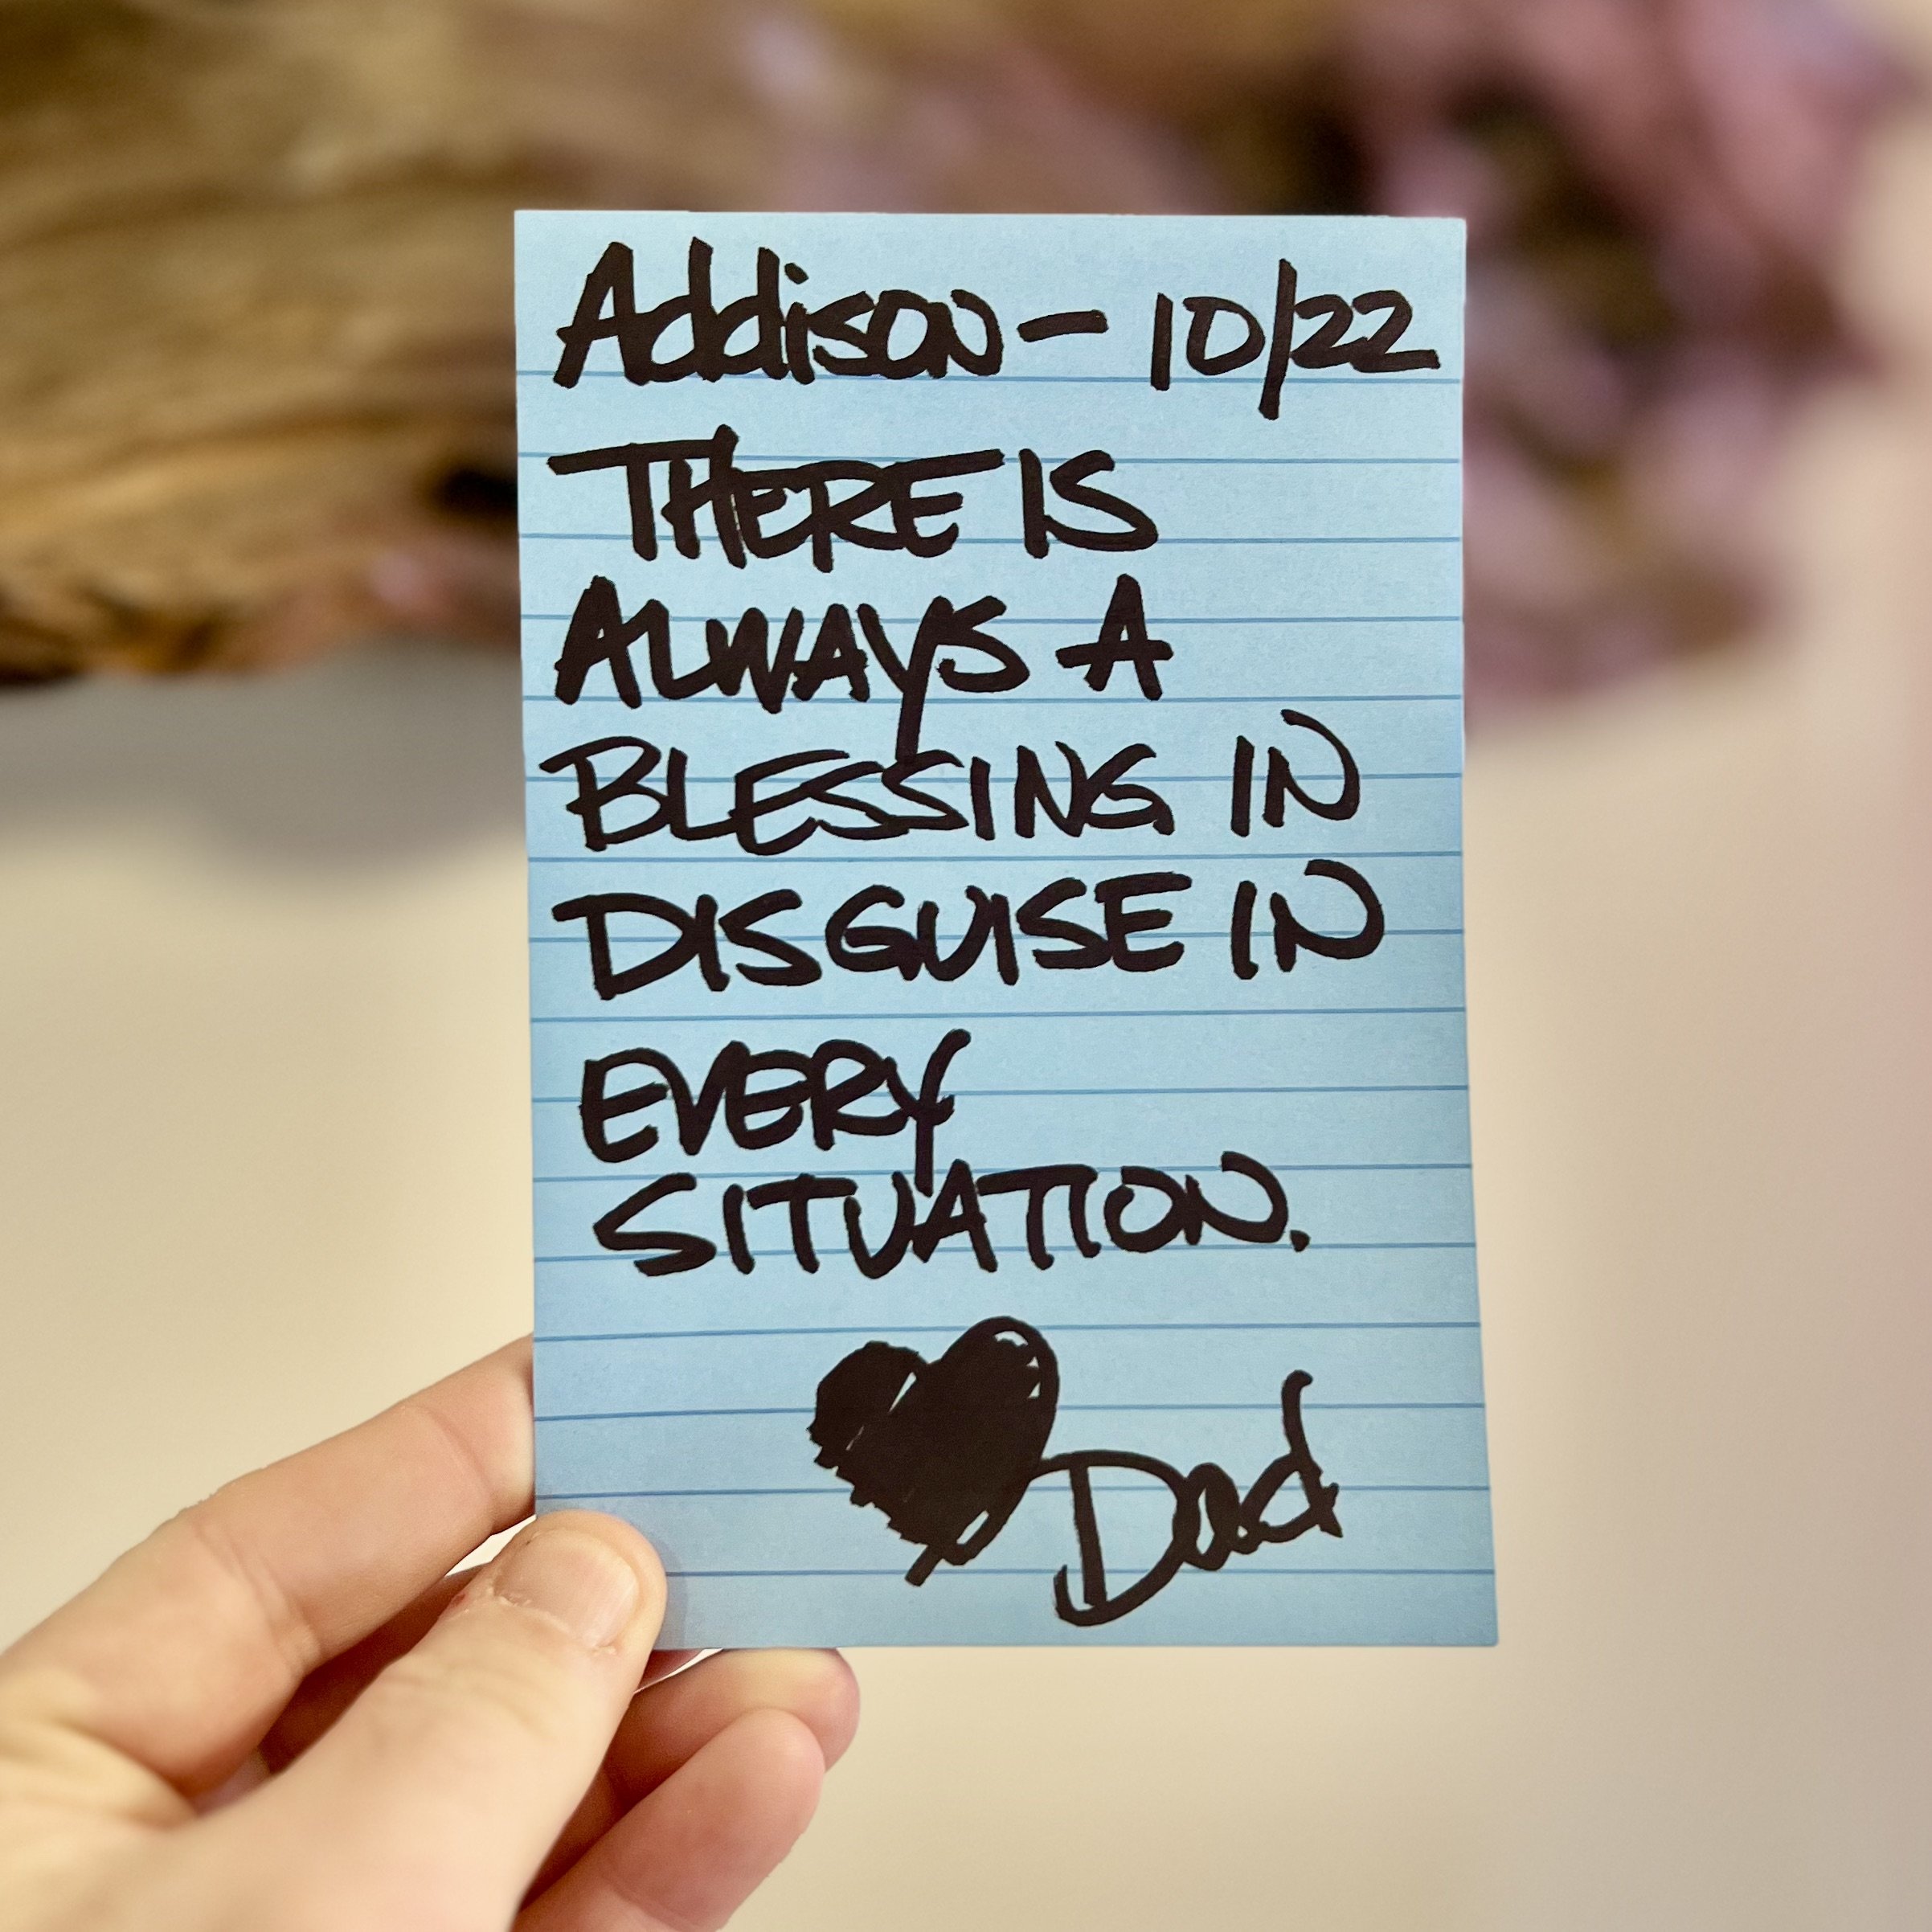 Addison - 10/22
THERE IS
ALWAYS A
BLESSING IN
DISGUISE IN
EVERY
SITUATION.
Dad